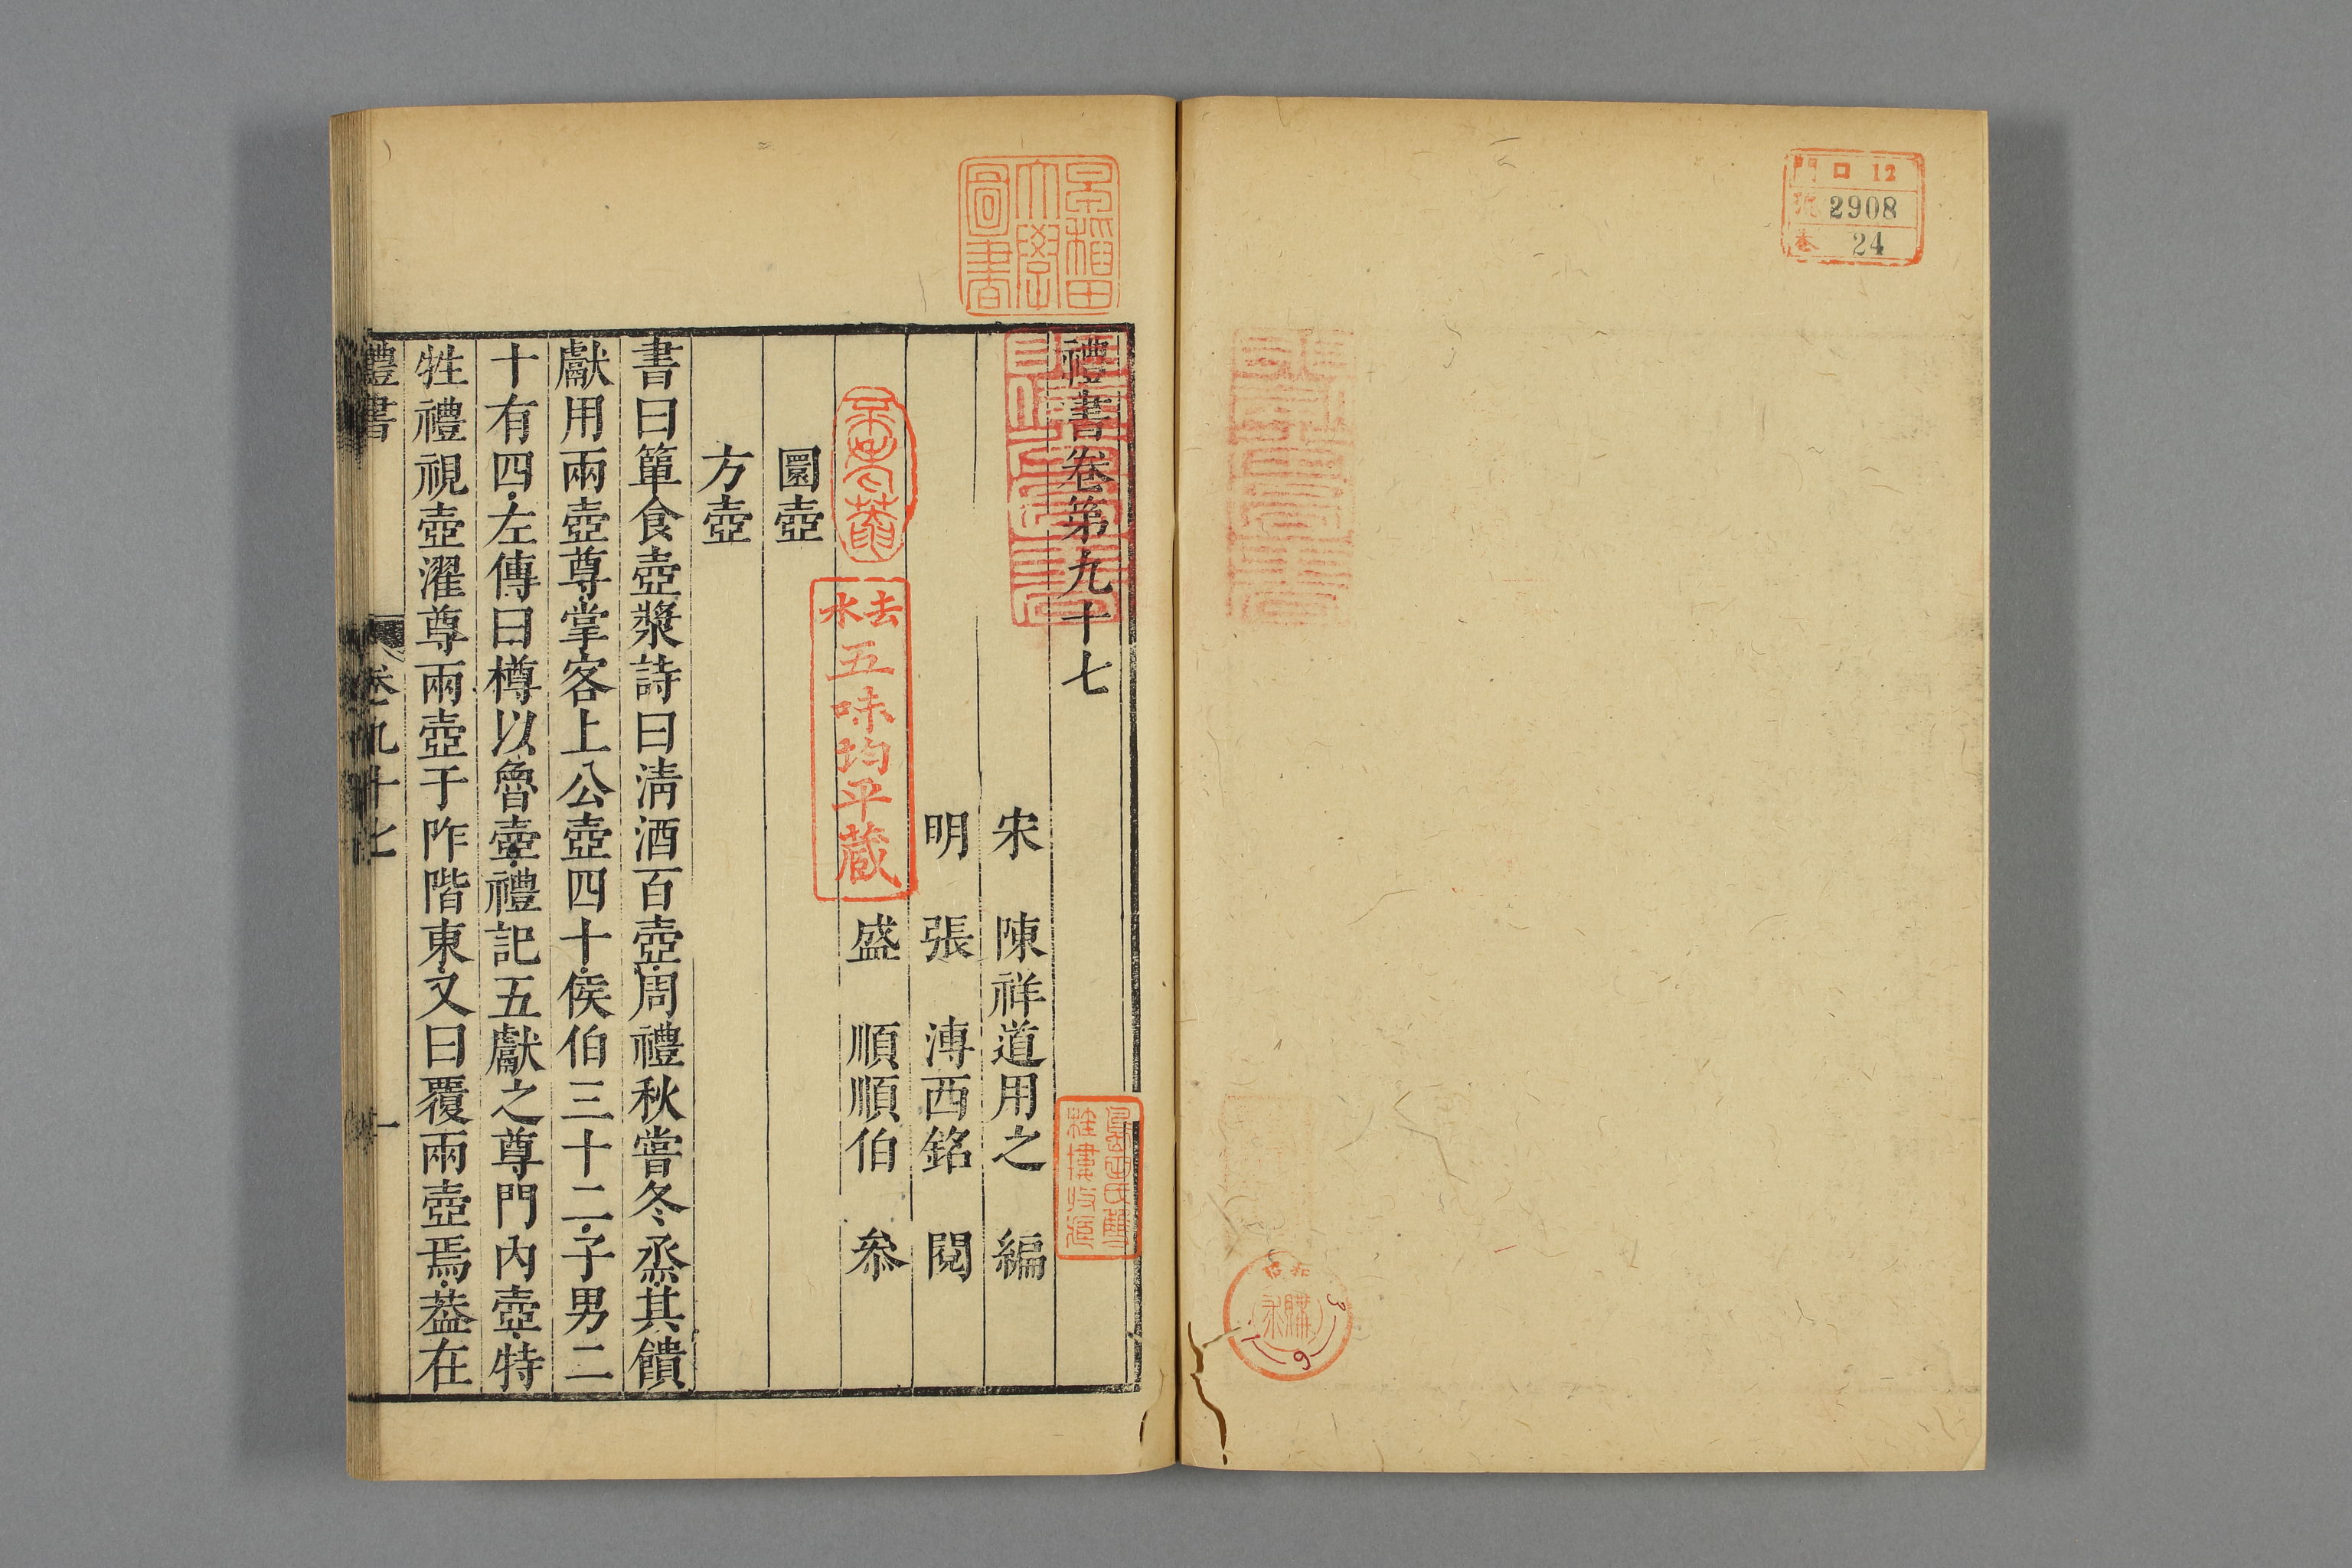 門 口 12
號 2908
巻 24
早稲田大學圖書
禮書卷第九十七
宋 陳祥道用之 編
明 張 溥西銘 閱
盛 順順伯 叅
圜壺
方壺
書曰簞食壺漿詩曰淸酒百壺周禮秋嘗冬烝其饋
獻用兩壺尊掌客上公壺四十侯伯三十二子男二
十有四左傳曰樽以魯壺禮記五獻之尊門內壺特
牲禮視壺濯尊兩壺于阼階東又曰覆兩壺焉葢在
禮書 卷九十七 一
去水
五味均平藏
購求